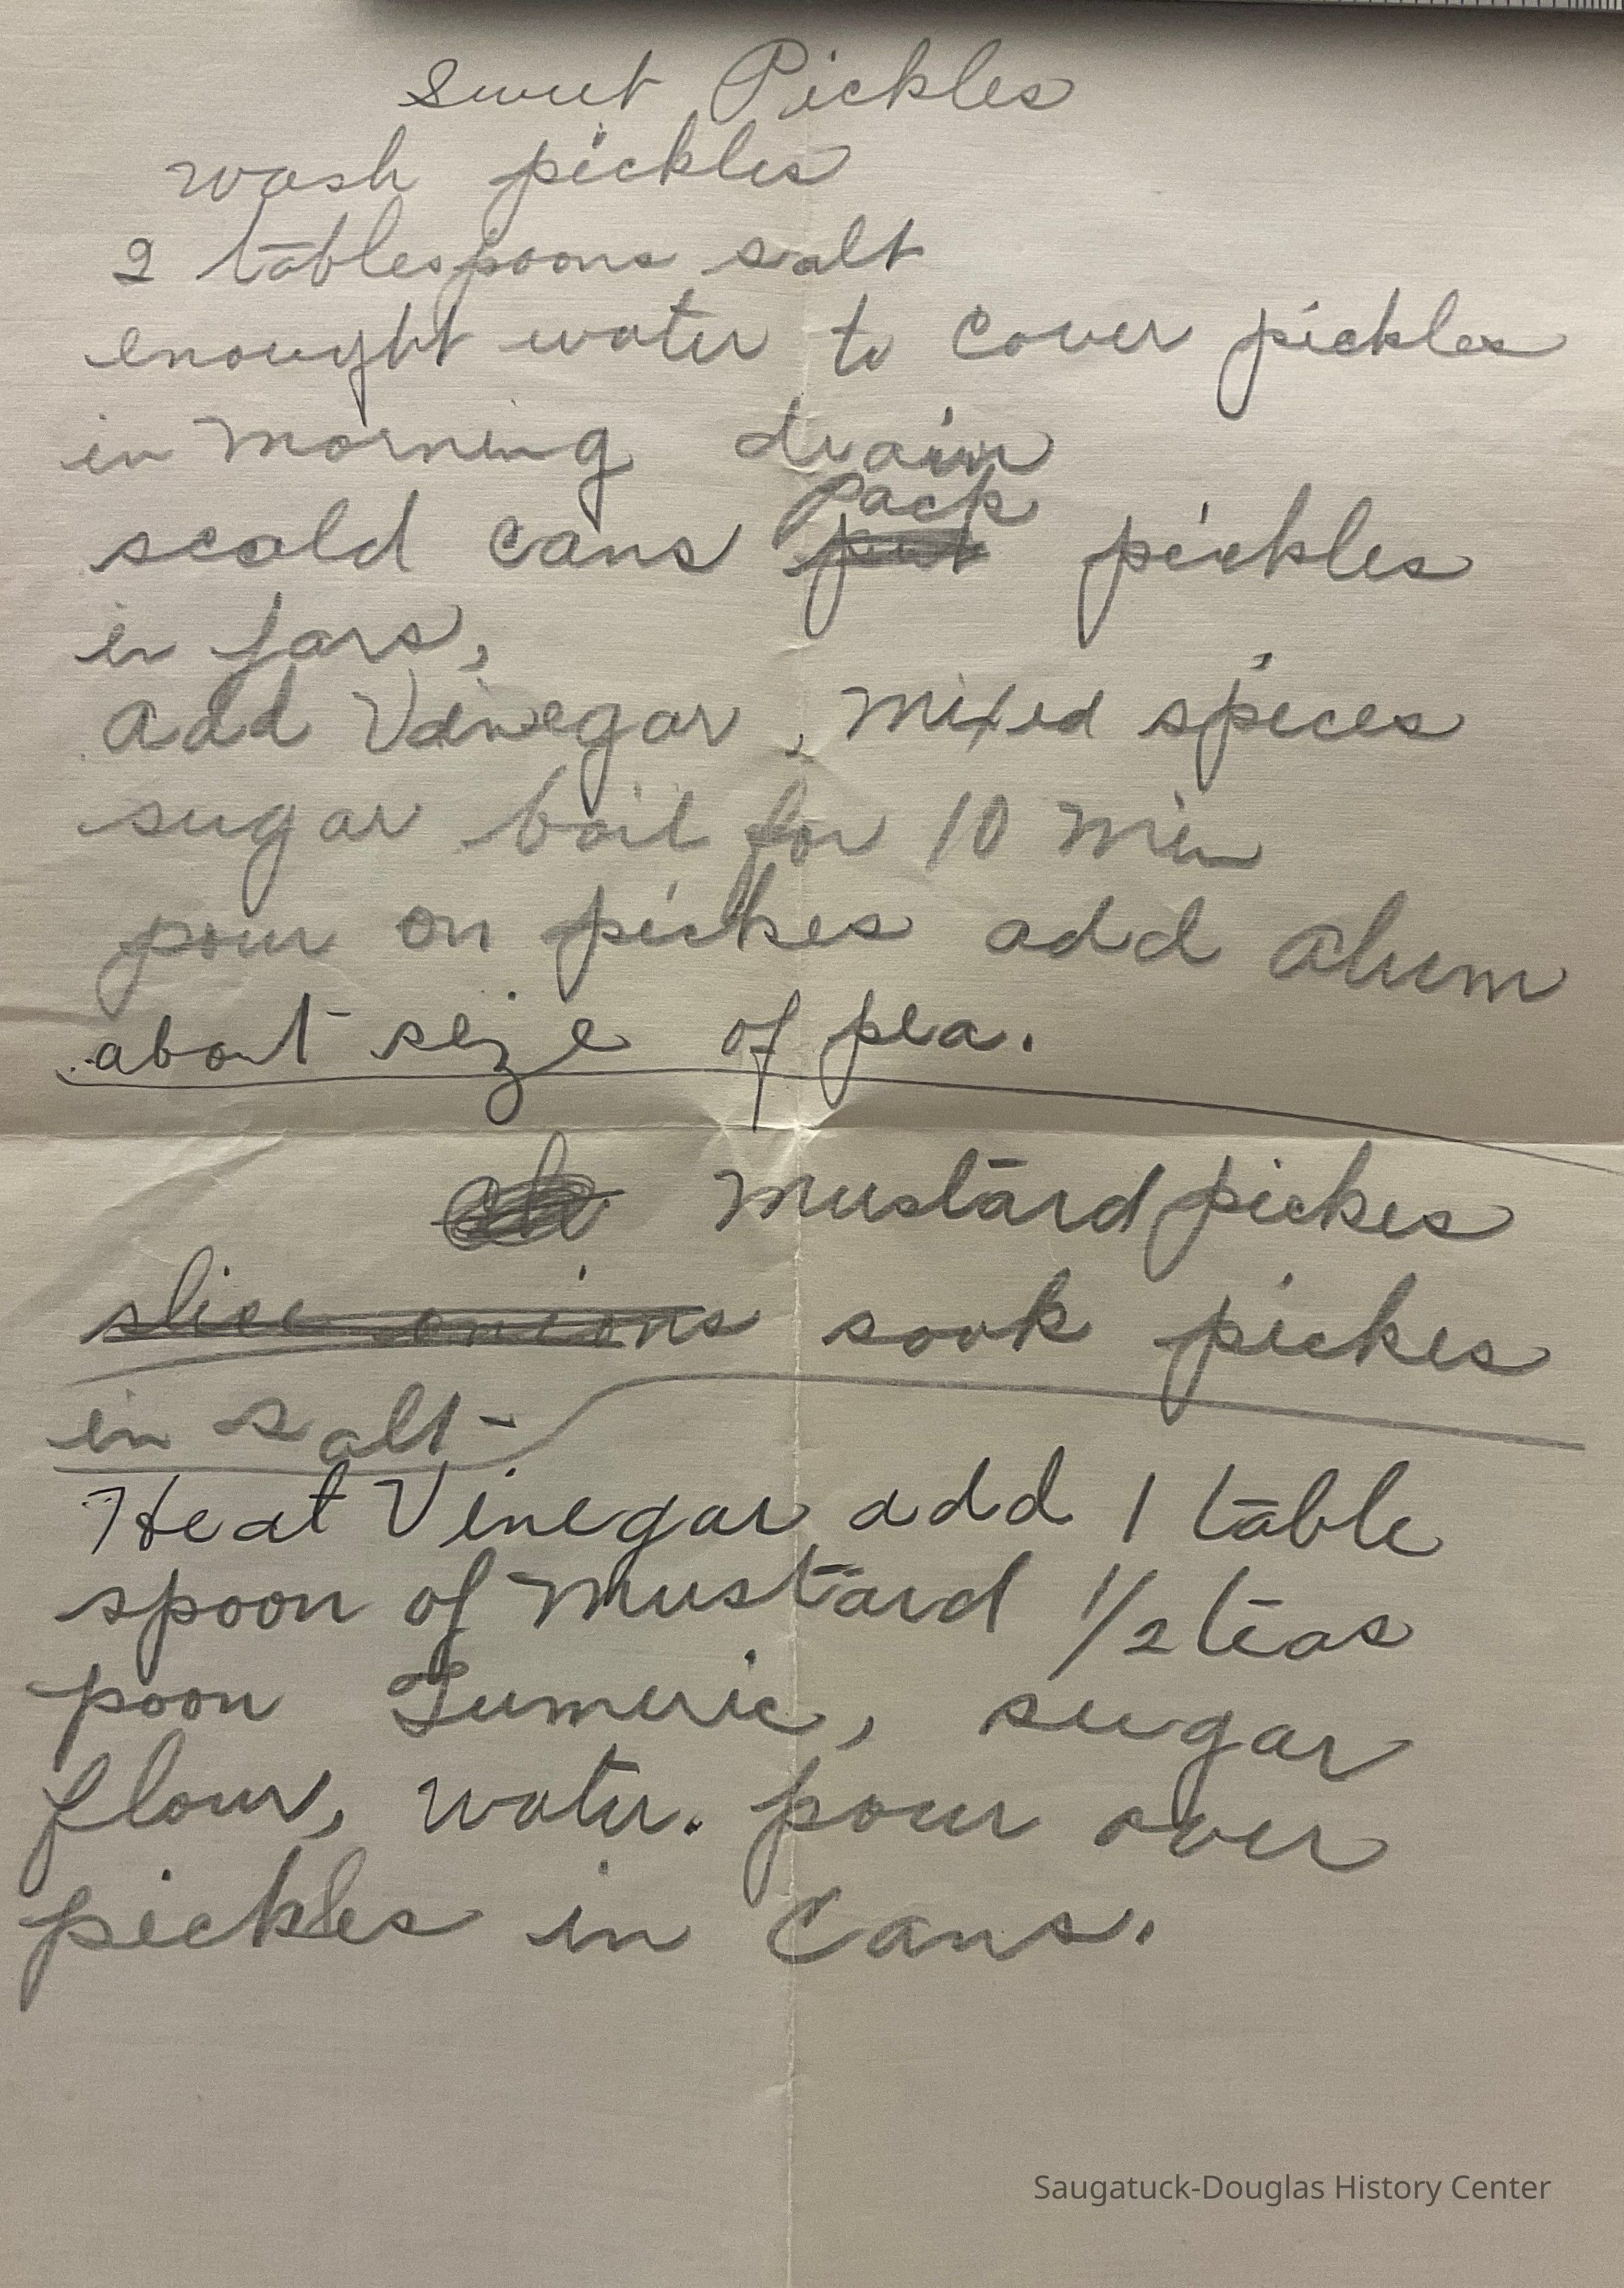 Sweet Pickles
wash pickles
2 tablespoons salt
enought water to cover pickles
in morning drain
scald cans put Pack pickles
in Jars,
add Vinegar, mixed spices
sugar boil for 10 min
pour on pickes add alum
about seze of pea.
Mustard pickes
slice onions soak pickes
in salt-
Heat Vinegar add 1 table
spoon of Mustard 1/2 teas
poon Tumeric, sugar
flour, water. pour over
pickles in Cans.
Saugatuck-Douglas History Center